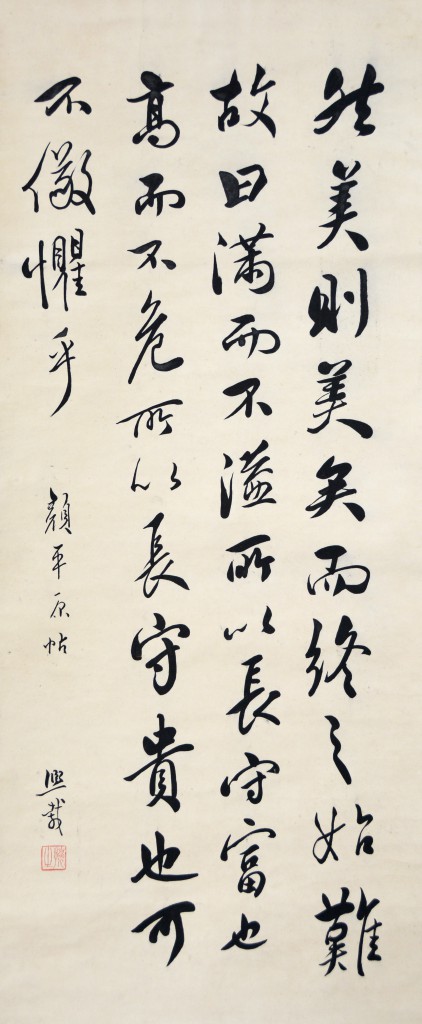 然美則美矣而終之始難
故曰滿而不溢所以長守富也
高而不危所以長守貴也可
不儆懼乎
顏平原帖
熙載